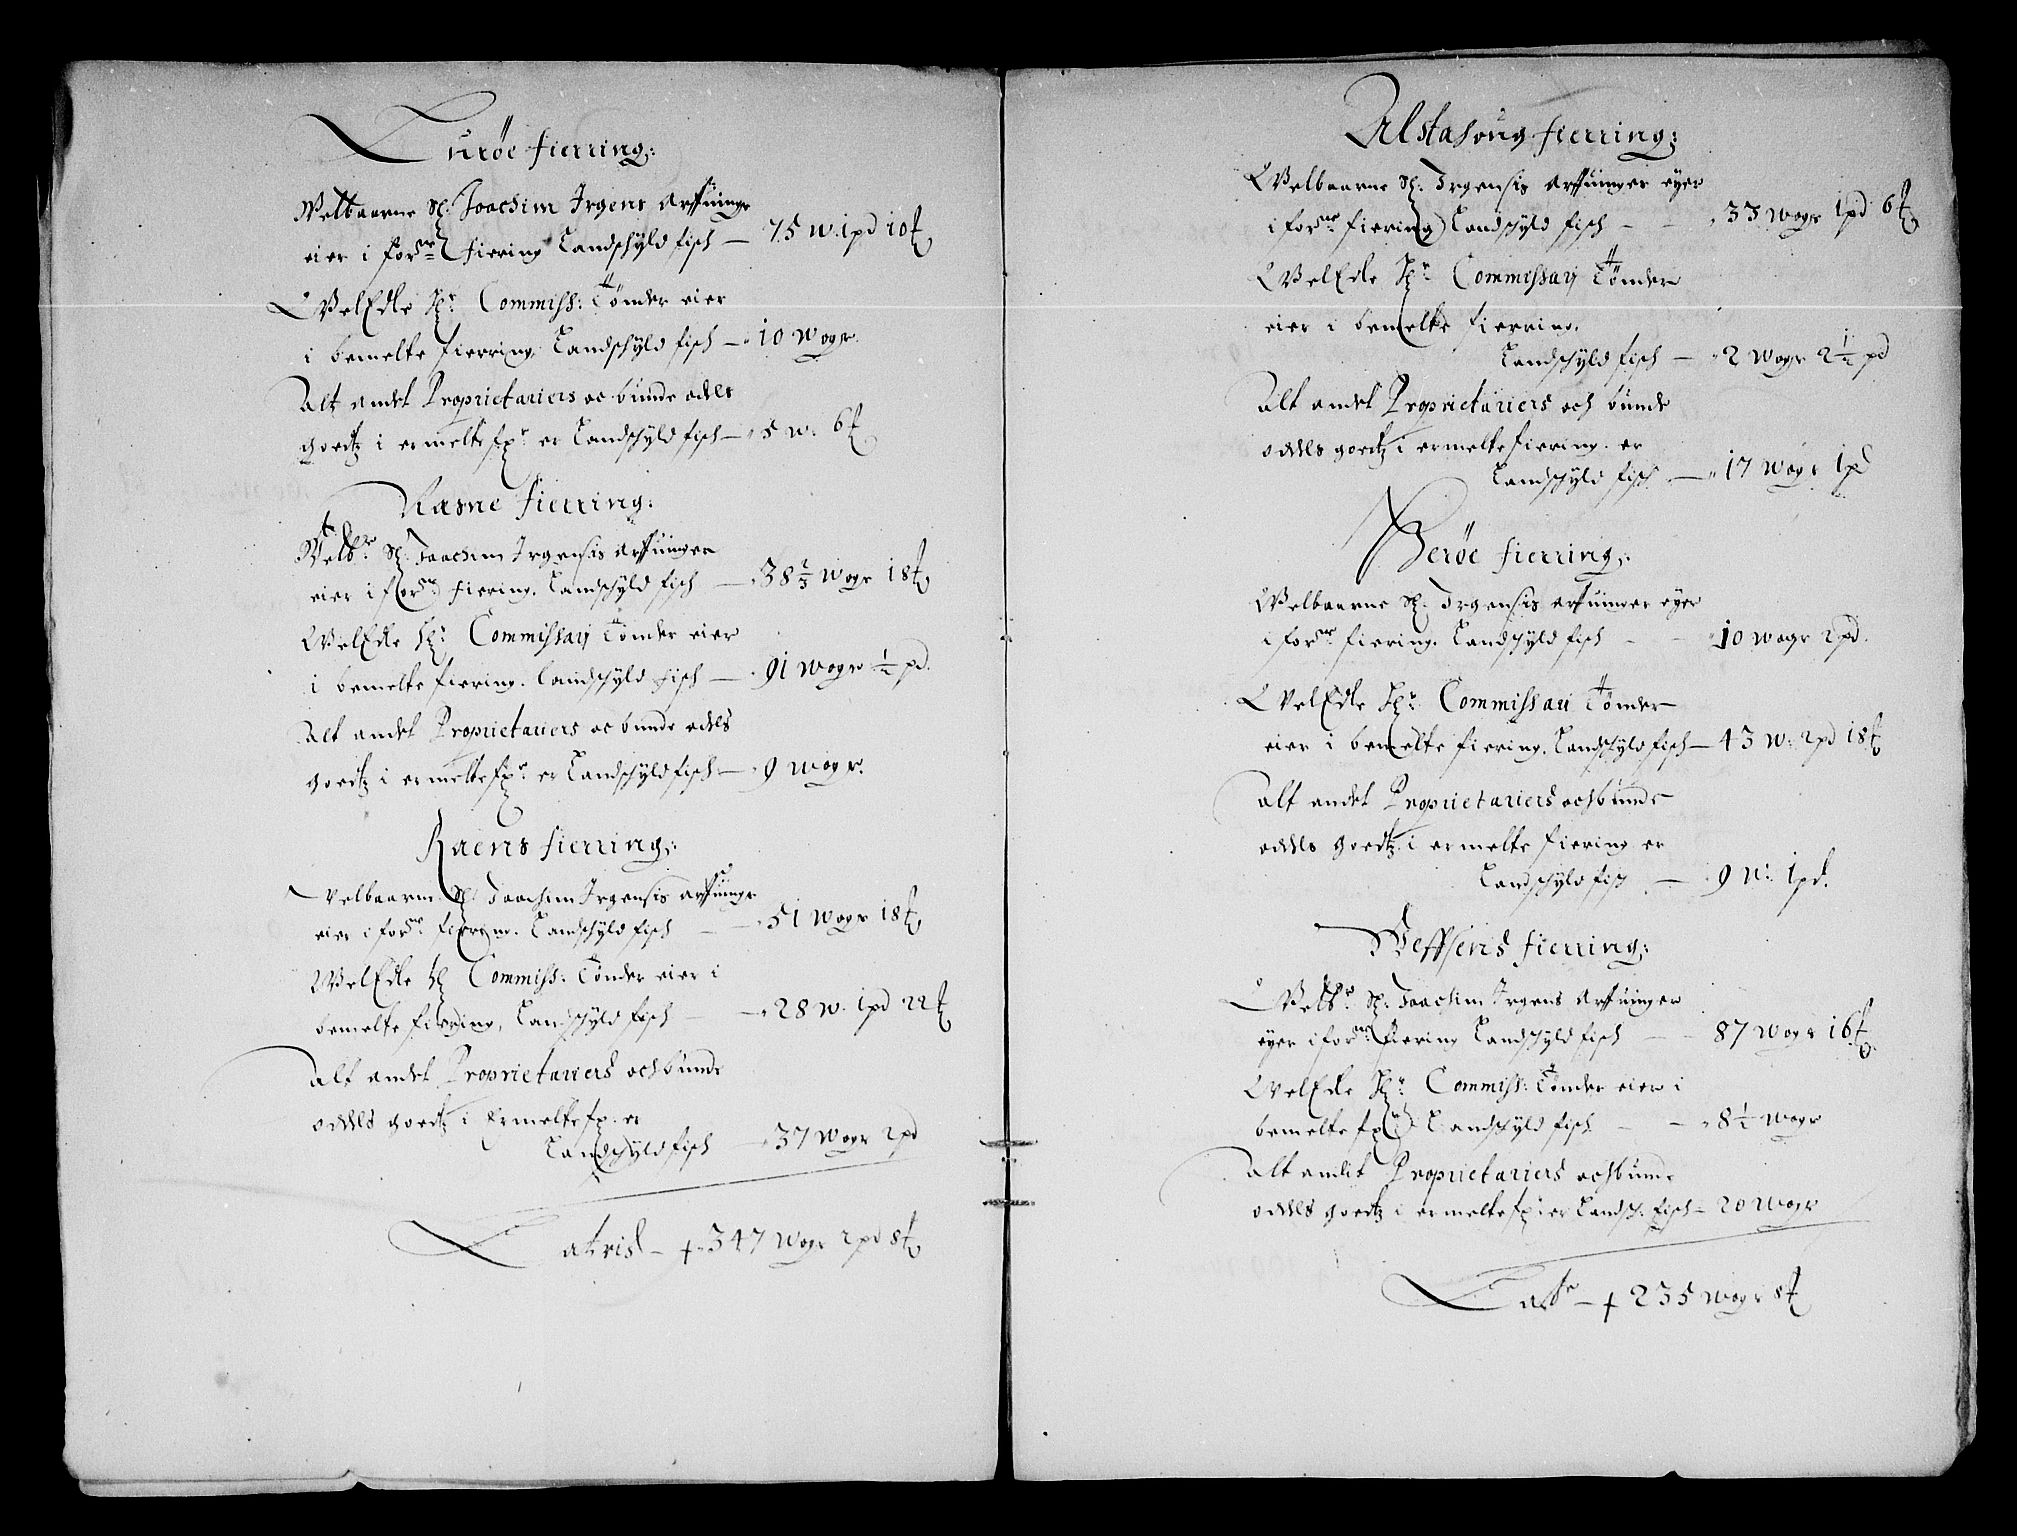 Luröe fierring:
Welbaarne Sl: Joachim Irgens Arffuinge
eier i forne fierring Landschÿld fisch — 75 W. 1 pd 10 ℔
WelEdle Hr Commiss: Tönder eier
i bemelte fierring, Landschÿld fisch — 10 Wogr.
Alt andet Proprietariers oc bunde odels
goedtz i ermelte fr er Landschÿld fisch — 5 W: 6 ℔
Nasne fierring:
Welbr Sl: Joachim Irgensis Arffuinger
eier i forne fierring. Landschÿld fisch — 38 2/3 Wogr 18 ℔
WelEdle Hr Commissarj Tönder eier
i bemelte fierring. Landschÿld fisch — 91 Wogr ½ pd.
Alt andet Proprietariers oc bunde odels
goedtz i ermelte fr er Landschÿld fisch — 9 Wogr.
Raens fierring:
Welbaarne Sl: Joachim Irgensis arffuinge
eier i forne fierring. Landschÿld fisch — 51 Wogr 18 ℔
WelEdle Hr Commiss: Tönder eier i
bemelte fierring, Landschÿld fisch — 28 W. 1 pd 22 ℔
Alt andet Proprietariers och bunde
oddels goedtz i Ermelte fr. er
Landschÿld fisch — 37 Wogr 2 pd
Lateris — 347 Wogr 2 pd 8 ℔
Alstahoug fierring:
Welbaarne Sl: Irgensis Arffuinger eyer
i forne fierring Landschÿld fisch — 33 Wogr 1 pd 6 ℔
WelEdle Hr Commissarj Tönder
eier i bemelte fierring.
Landschÿld fisch — 2 Wogr 2 ½ pd
Alt andet Proprietariers och bunde
oddels goedtz i ermelte fierring. er
Landschÿld fisch. — 17 Wogr 1 pd
Heröe fierring:
Welbaarne Sl. Irgensis arffuinger eyer
i forne fierring. Landschÿld fisch — 10 Wogr 2 pd.
WelEdle Hr Commissari Tönder
eier i bemelte fierring. Landschÿld fisch — 43 W: 2 pd 18 ℔
Alt andet Proprietariers och bunde
oddels goedtz i ermelte fierring er
Landschÿld fisch — 9 W: 1 pd.
Weffsens fierring:
Welbr Sl: Joachim Irgens Arffuinger
eyer i forne fierring Landschÿld fisch — 87 Wogr 16 ℔
WelEdle Hr Commiss: Tönder eier i
bemelte fr Landschÿld fisch — 8 ½ Wogr
Alt andet Proprietariers och bunde
oddels goedtz i ermelte fr: er Landsch. fisch — 20 Wogr
Latre — 235 Wogr 8 ℔